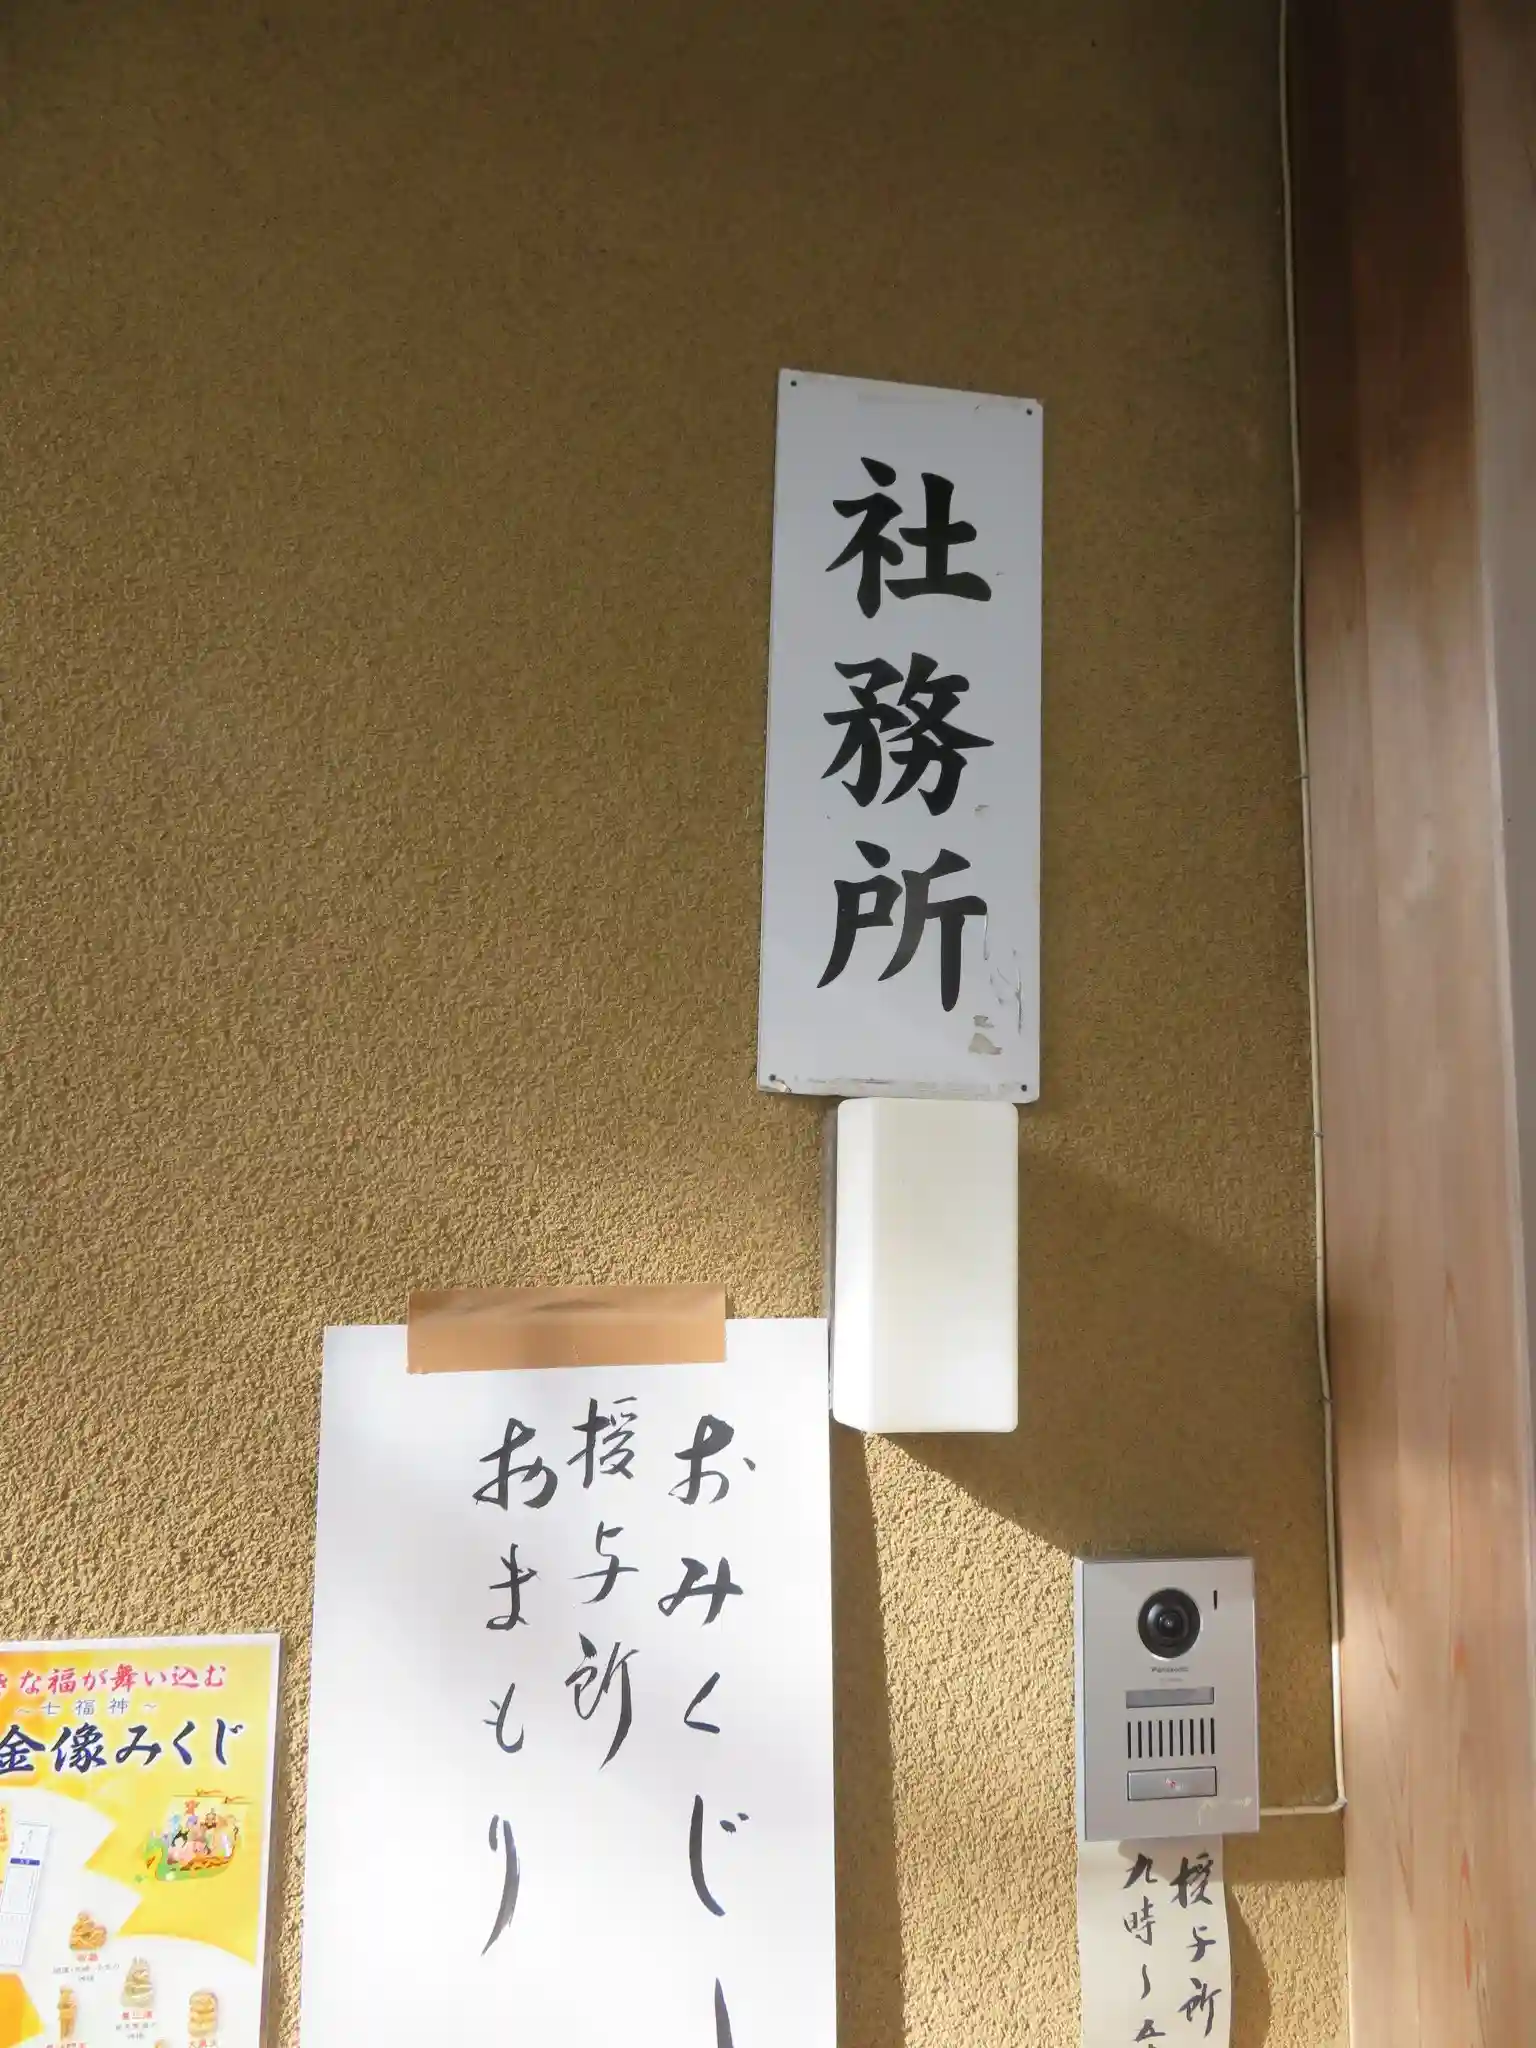 社務所
おみくじ
授与所
おまもり
きな福が舞い込む
～七福神～
金像みくじ
Panasonic
授与所
九時～五